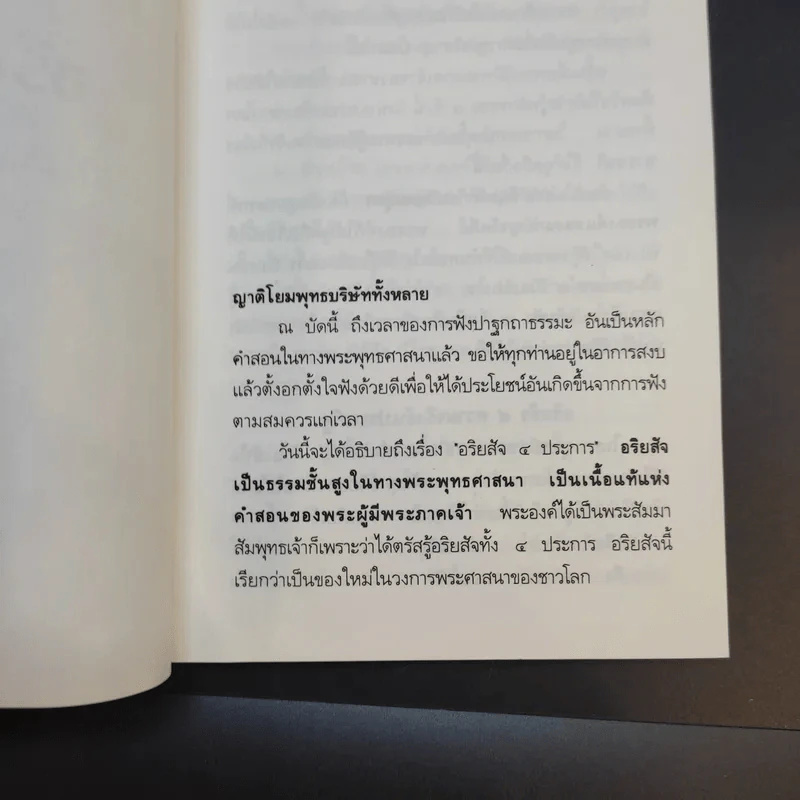 ญาติโยมพุทธบริษัททั้งหลาย
ณ บัดนี้ ถึงเวลาของการฟังปาฐกถาธรรมะ อันเป็นหลัก
คำสอนในทางพระพุทธศาสนาแล้ว ขอให้ทุกท่านอยู่ในอาการสงบ
แล้วตั้งอกตั้งใจฟังด้วยดีเพื่อให้ได้ประโยชน์อันเกิดขึ้นจากการฟัง
ตามสมควรแก่เวลา
วันนี้จะได้อธิบายถึงเรื่อง "อริยสัจ ๔ ประการ" อริยสัจ
เป็นธรรมชั้นสูงในทางพระพุทธศาสนา เป็นเนื้อแท้แห่ง
คำสอนของพระผู้มีพระภาคเจ้า พระองค์ได้เป็นพระสัมมา
สัมพุทธเจ้าก็เพราะว่าได้ตรัสรู้อริยสัจทั้ง ๔ ประการ อริยสัจนี้
เรียกว่าเป็นของใหม่ในวงการพระศาสนาของชาวโลก